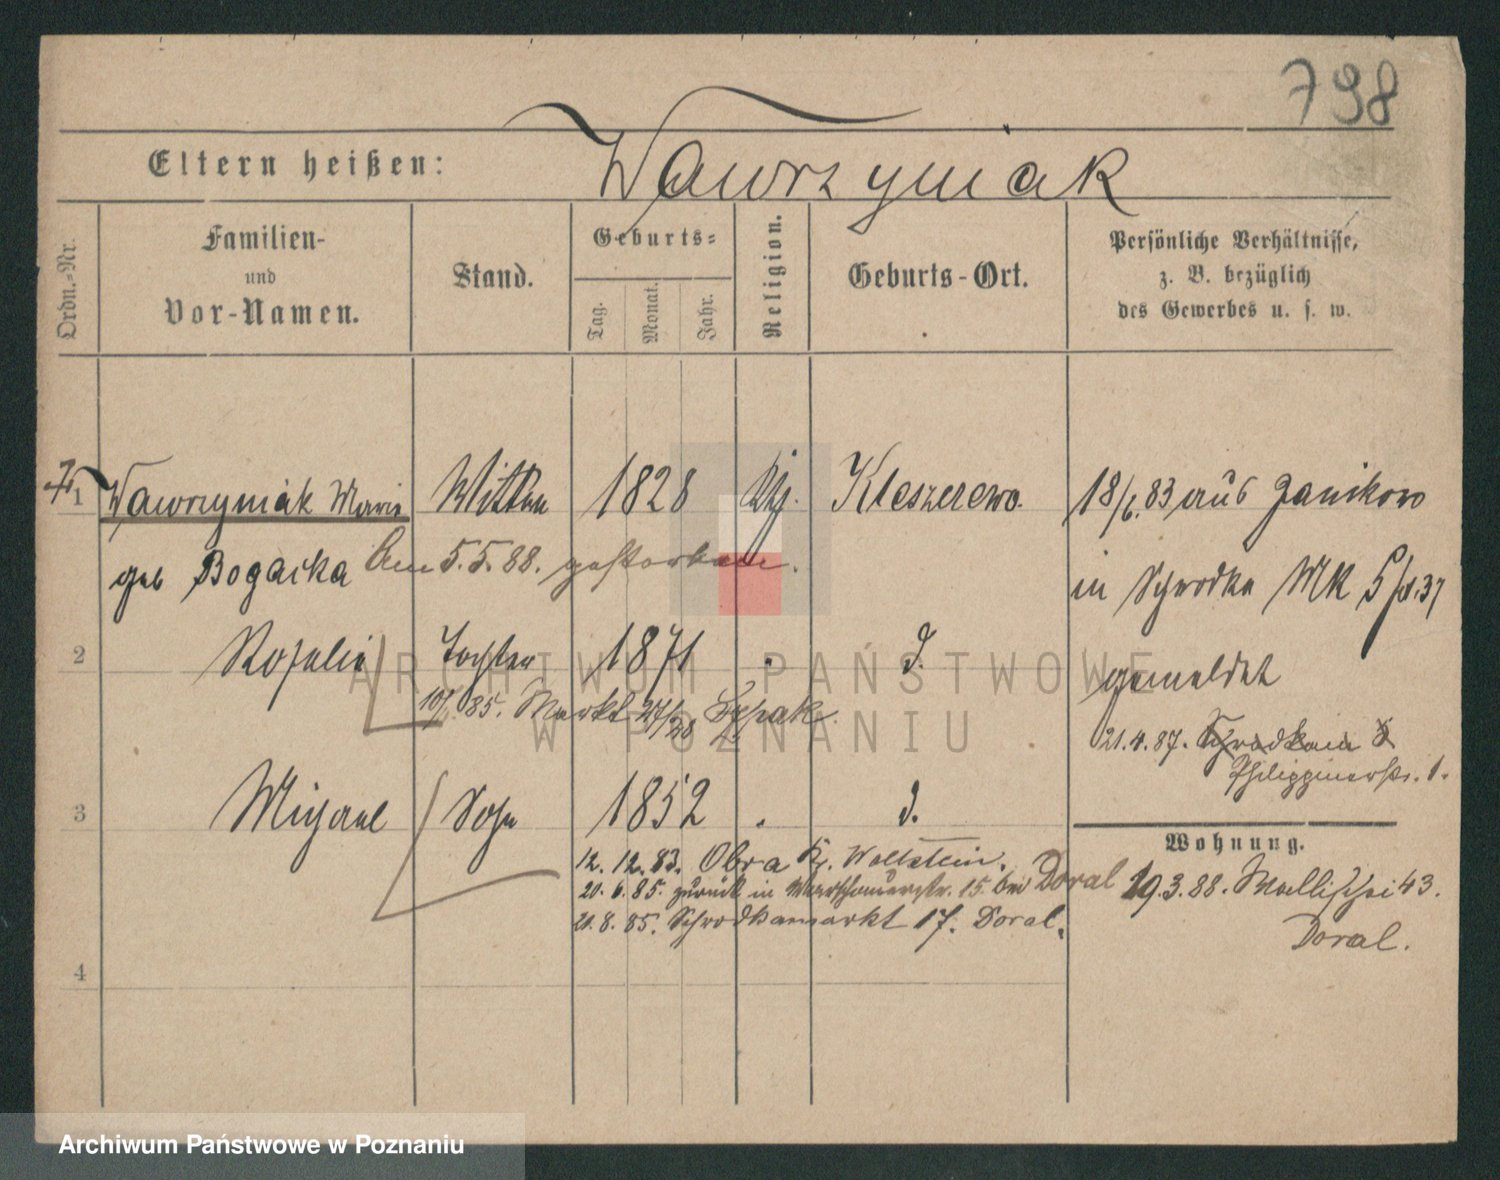 798
Eltern heißen: Wawrzyniak
Ordn.-Nr.
Familien- und Vor-Namen.
Stand.
Geburts-
Tag.
Monat.
Jahr.
Religion.
Geburts-Ort.
Persönliche Verhältnisse,
z. B. bezüglich
des Gewerbes u. s. w.
1 Wawrzyniak Marie Wittwe 1828 Kleszczewo. 18/6.83 aus Janikowo
geb Bogacka Am 5.5.88. gestorben.
in Schrodka
2 Rosalie Tochter 1871 d.
gemeldet
85. Markt
21.4.87. Schrodkam
Philippinerstr. 1.
3 Michael Sohn 1852 . d.
Wohnung.
12. 12. 83. Obra Kr. Wollstein.
20. 6. 85. zurück in Warschauerstr. 15. bei Doral
21. 8. 85. Schrodkamarkt 17. Doral.
19.3.88. Wallischei 43.
Doral.
4
ARCHIWUM PAŃSTWOWE
W POZNANIU
Archiwum Państwowe w Poznaniu